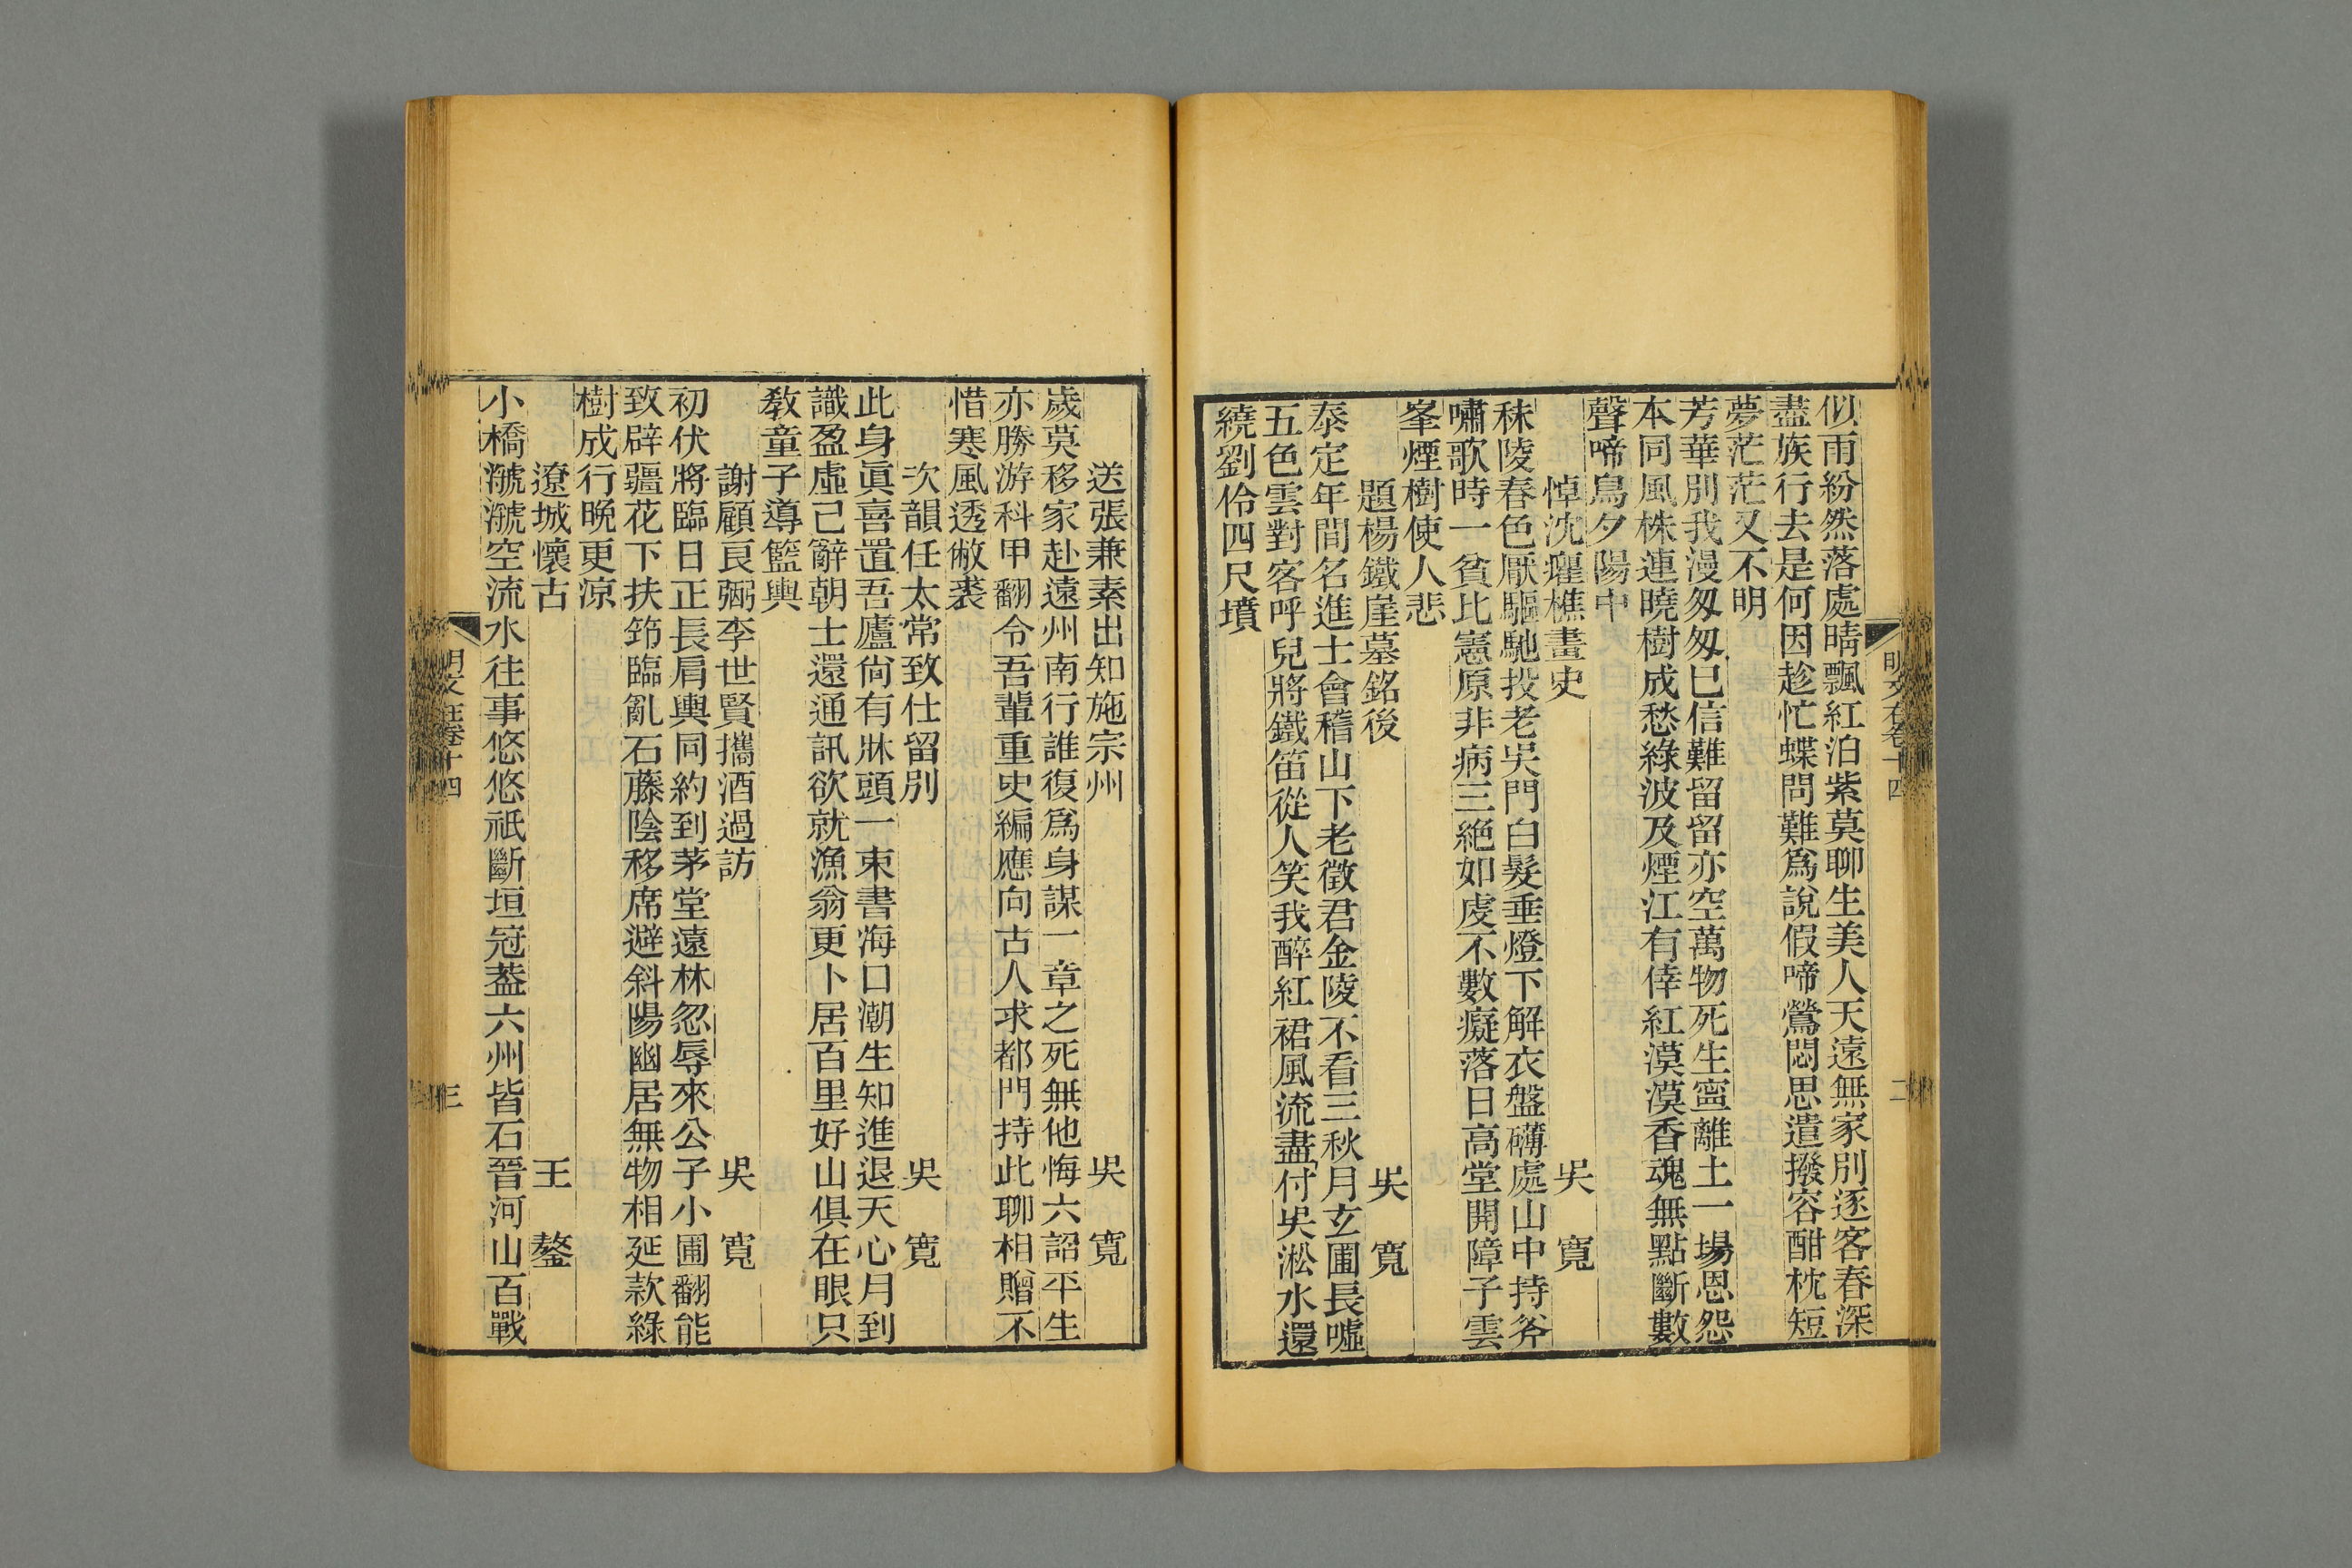 似雨紛然落處晴飄紅泊紫莫聊生美人天遠無家別逐客春深
盡族行去是何因趁忙蝶問難爲說假啼鶯悶思遣撥容酣枕短
夢茫茫又不明
芳華別我漫匆匆巳信難留留亦空萬物死生寧離土一場恩怨
本同風株連曉樹成愁綠波及煙江有倖紅漠漠香魂無點斷數
聲啼鳥夕陽中
悼沈癯樵畫史 吳 寬
秣陵春色厭驅馳投老吳門白髮垂燈下解衣盤礴處山中持斧
嘯歌時一貧比憲原非病三絶如虔不數癡落日高堂開障子雲
峯煙樹使人悲
題楊鐵崖墓銘後 吳 寬
泰定年間名進士會稽山下老徵君金陵不看三秋月玄圃長噓
五色雲對客呼兒將鐵笛從人笑我醉紅裙風流盡付吳淞水還
繞劉伶四尺墳
明文在卷十四 二
送張兼素出知施宗州 吳 寬
歲莫移家赴遠州南行誰復爲身謀一章之死無他悔六詔平生
亦勝游科甲翻令吾輩重史編應向古人求都門持此聊相贈不
惜寒風透敝裘
次韻任太常致仕留別 吳 寬
此身眞喜置吾廬尙有牀頭一束書海口潮生知進退天心月到
識盈虛己辭朝士還通訊欲就漁翁更卜居百里好山俱在眼只
教童子導籃輿
謝顧良弼李世賢攜酒過訪 吳 寬
初伏將臨日正長肩輿同約到茅堂遠林忽辱來公子小圃翻能
致辟疆花下扶筇臨亂石藤陰移席避斜陽幽居無物相延款綠
樹成行晚更涼
遼城懷古 王 鏊
小橋㶁㶁空流水往事悠悠祇斷垣冠葢六州皆石晉河山百戰
明文在卷十四 三